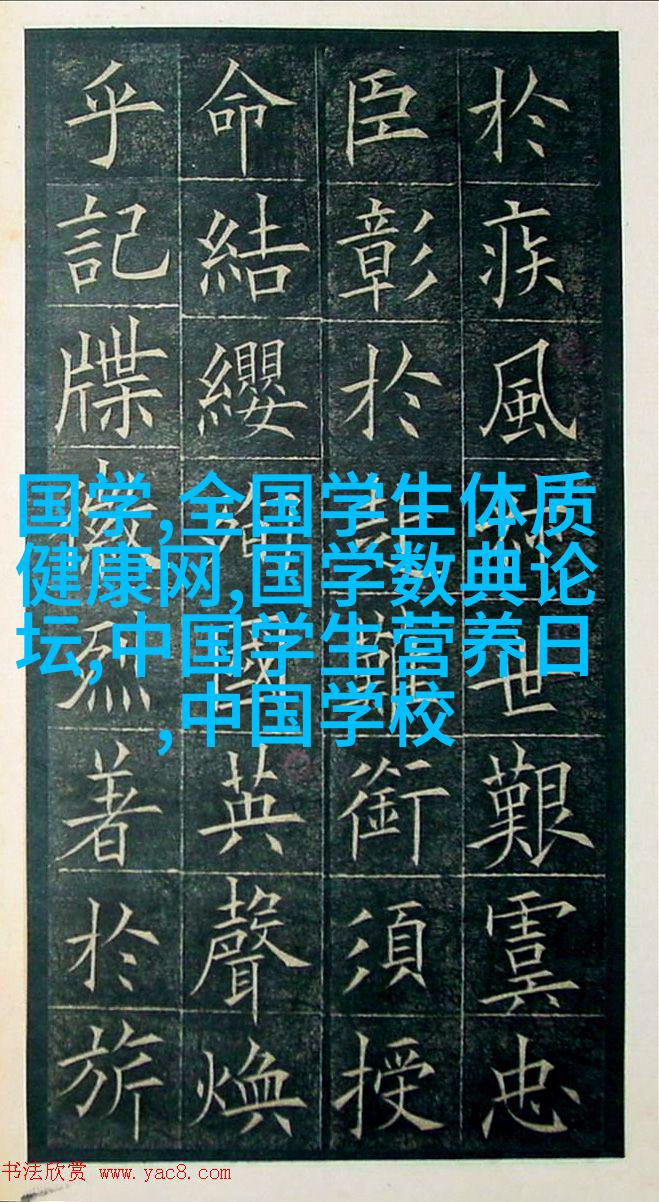 於疾風世艱虞忠
臣彰於難銜須授
命結纓國英聲煥
乎記牒徽烈著於旂
国学,全国学生体质
健康网,国学数典论
坛,中国学生营养日
,中国学校
书法欣赏 www.yac8.com